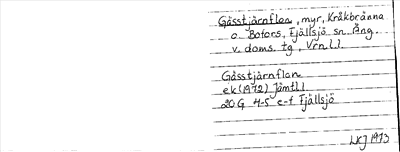 Gåsstjärnflon, myr, Kråkbränna
o. Botors, Fjällsjö sn. Ång.
v. doms. tg, Vrn.l.l.
Gåsstjärnflon
ek (1972) Jämtl.l
20G 4-5 e-f Fjällsjö
LKJ 1973